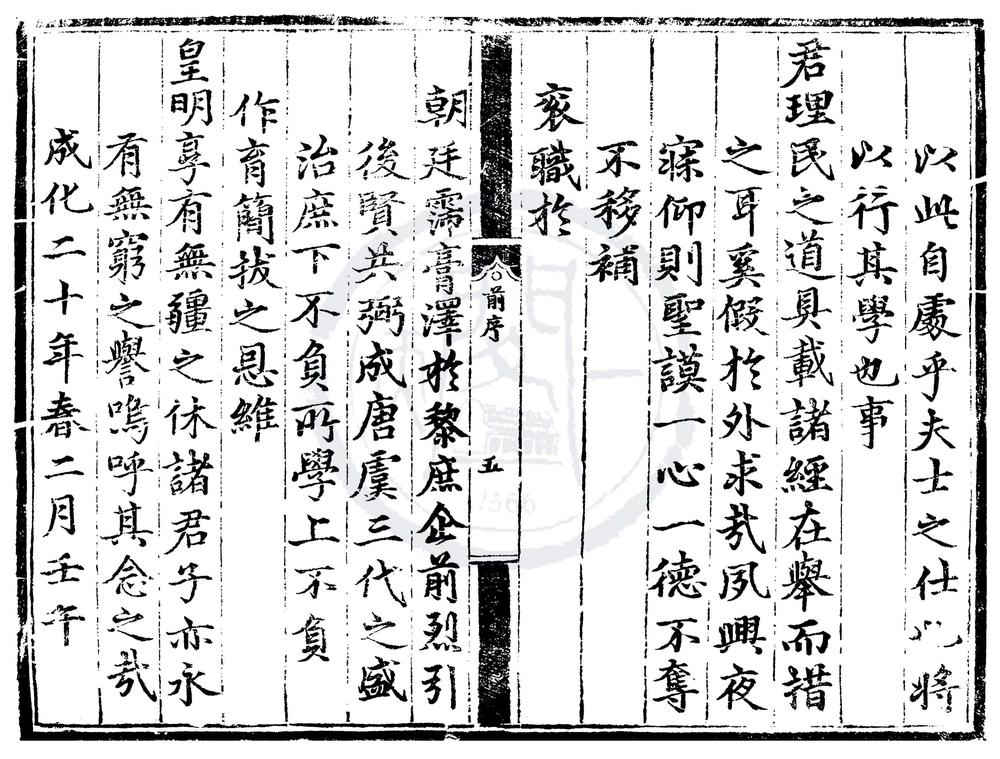 以此自處乎夫士之仕也將
以行其學也事
君理民之道具載諸經在舉而措
之耳奚假於外求㢤夙興夜
寐仰則聖謨一心一德不奪
不移補
袞職於
前序
五
朝廷霈膏澤於黎庶企前烈引
後賢共弼成唐虞三代之盛
治庶下不負所學上不負
作育簡拔之恩維
皇明享有無疆之休諸君子亦永
有無窮之譽嗚呼其念之㢤
成化二十年春二月壬午
1566